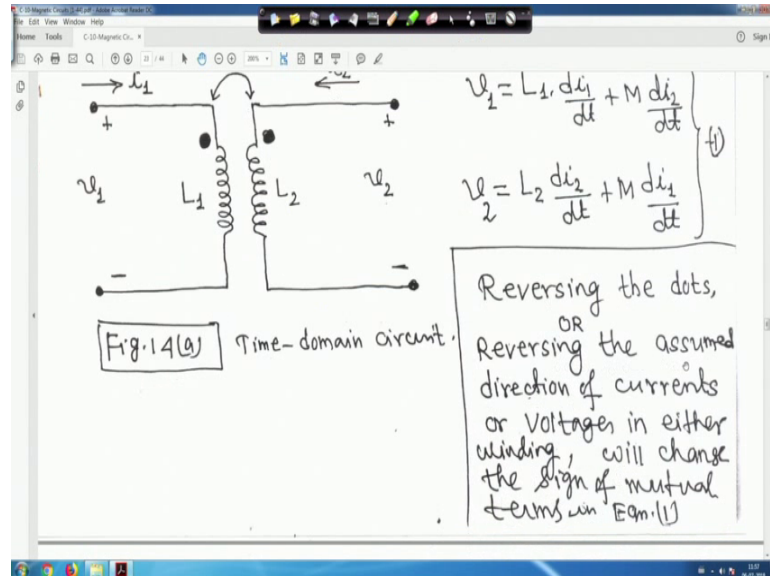 C-10-Magnetic Circuits (1-44).pdf - Adobe Acrobat Reader DC
File Edit View Window Help
Home Tools C-10-Magnetic Cir... × Sign
23 / 44 200%
i1
v1 = L1. di1/dt + M di2/dt
(1)
v2 = L2 di2/dt + M di1/dt
+ +
v1 L1 L2 v2
− −
Fig.14(a) Time-domain circuit.
Reversing the dots,
OR
Reversing the assumed
direction of currents
or voltages in either
winding, will change
the sign of mutual
terms in Eqn.(1)
11:57